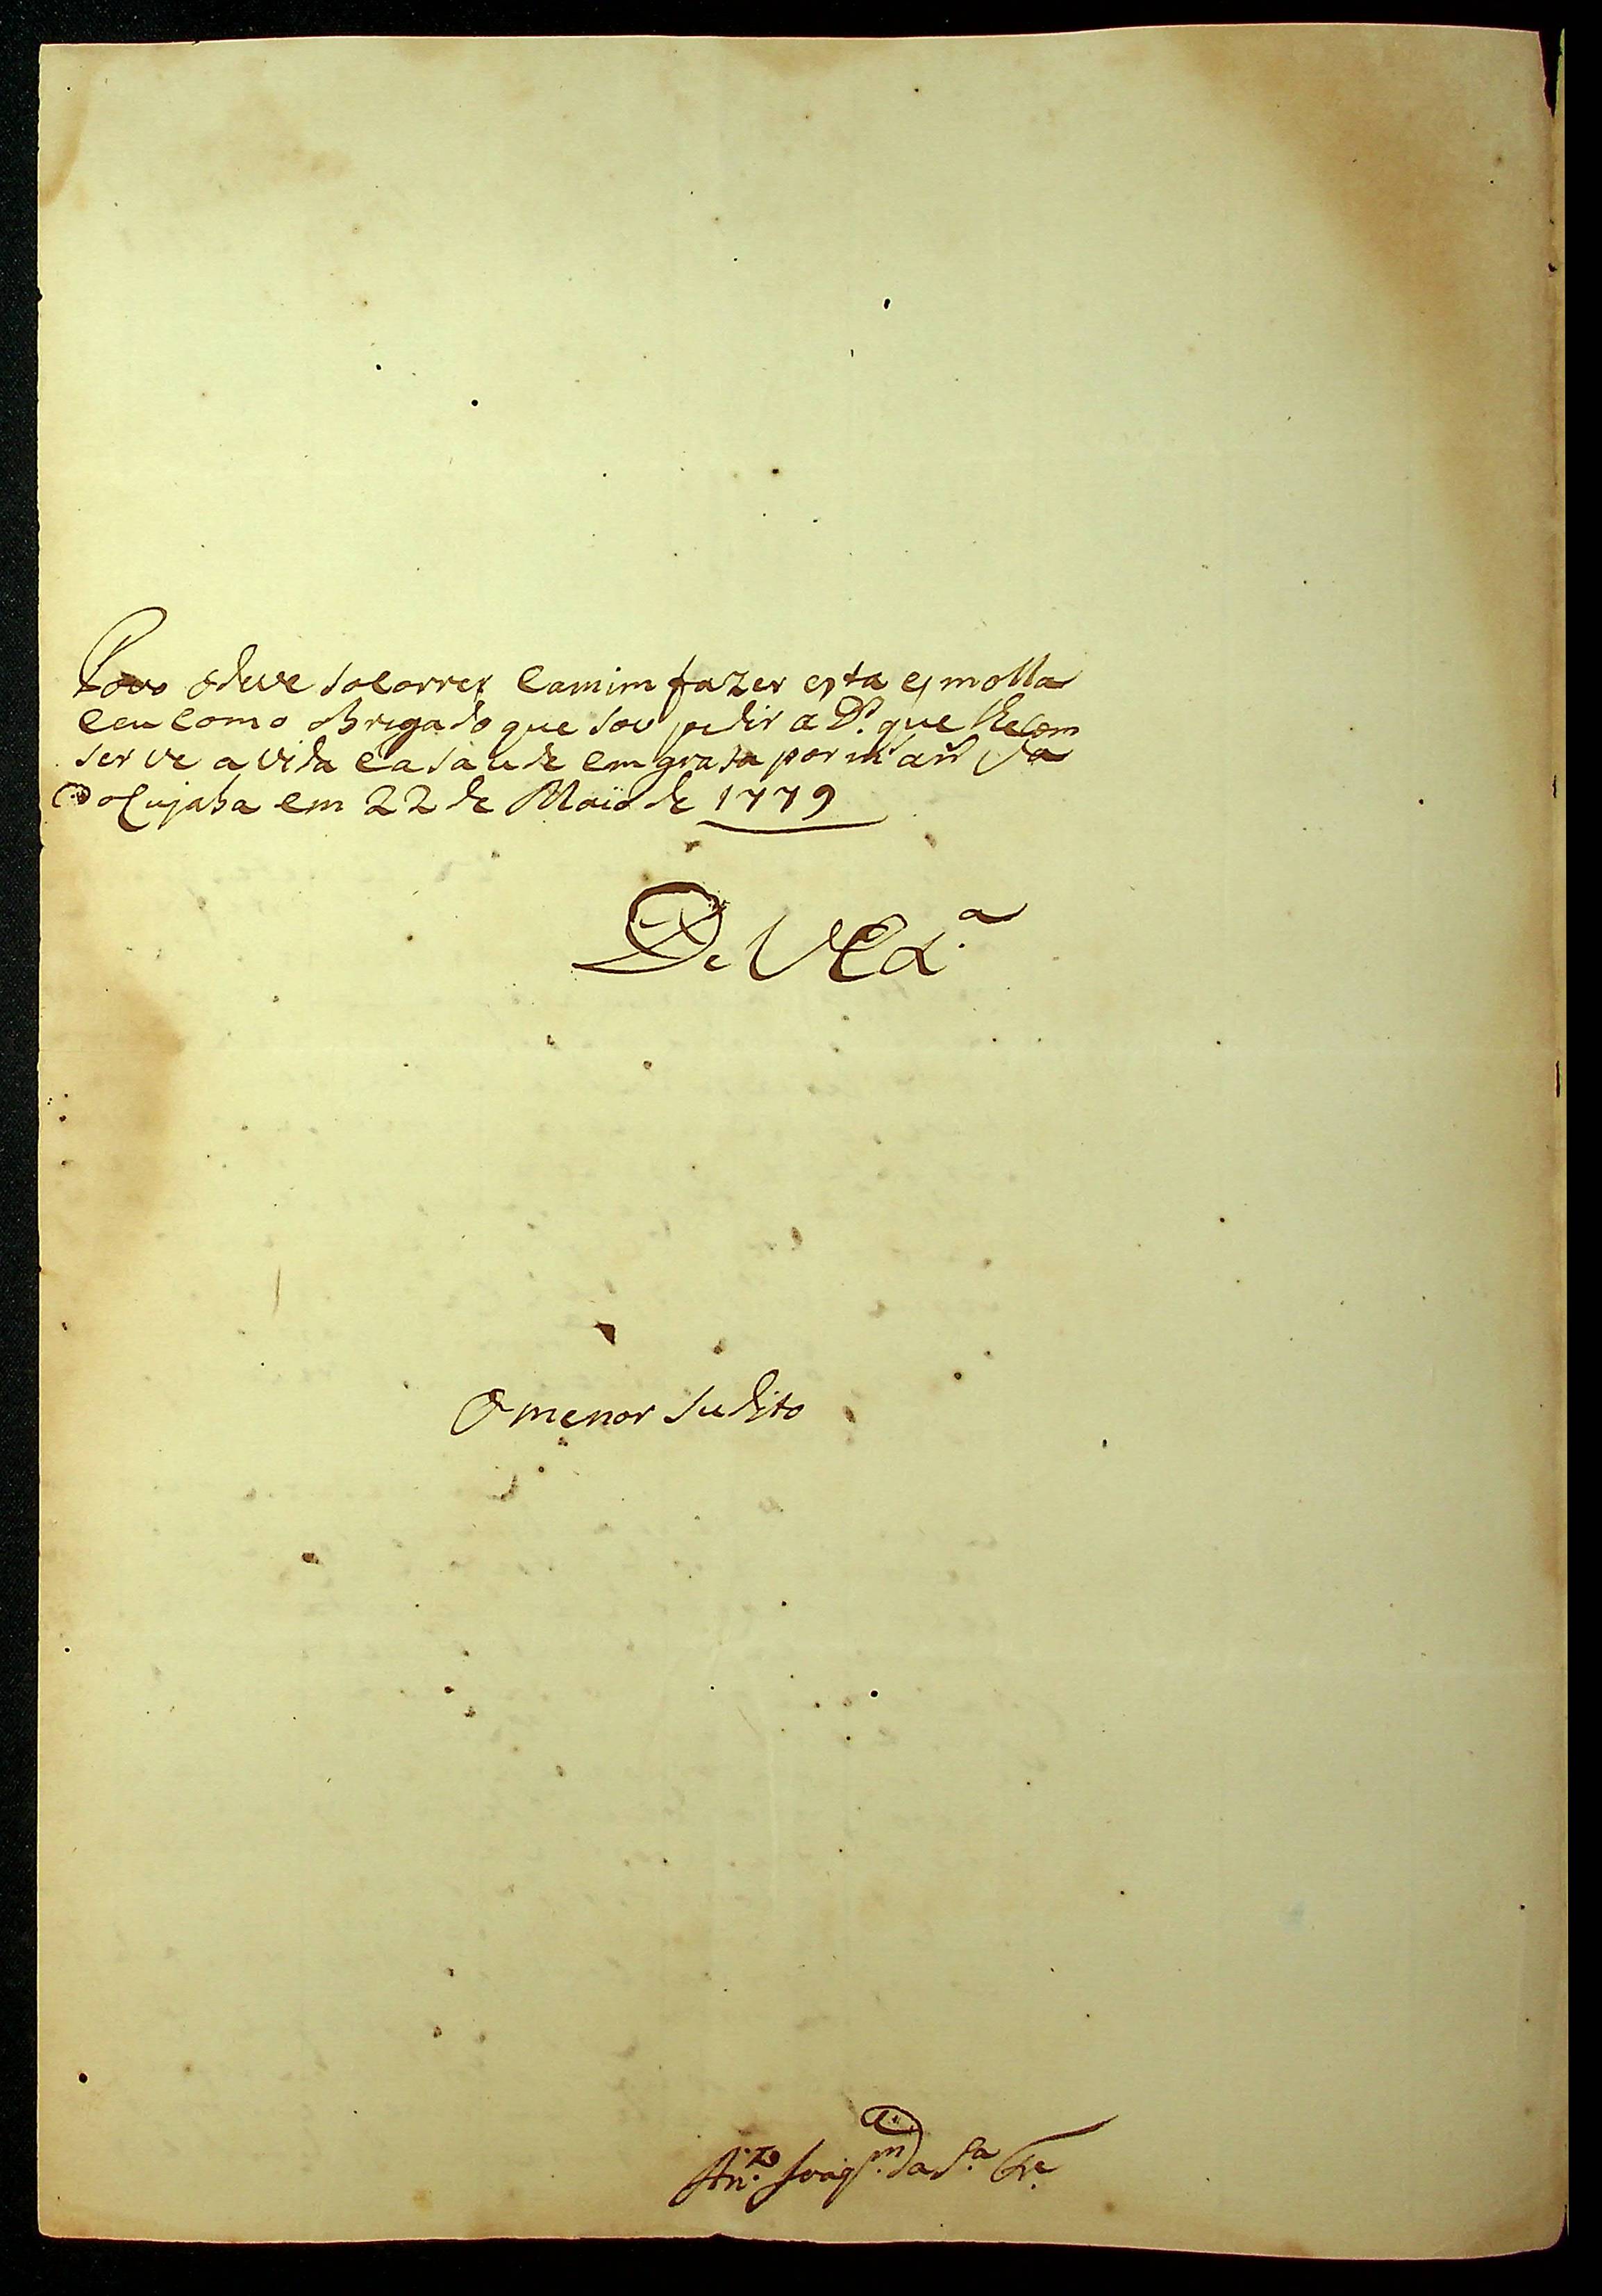 Povo odeve socorrer eamim fazer esta esmolla
eeu como obrigado que sou pedir a D.s que lhecom
serve avida easaude emgrasa por m an V.a
do Cujaba em 22 de Maio de 1779
De VEx.a
O menor sudito
An.to Joaq.m da S.a